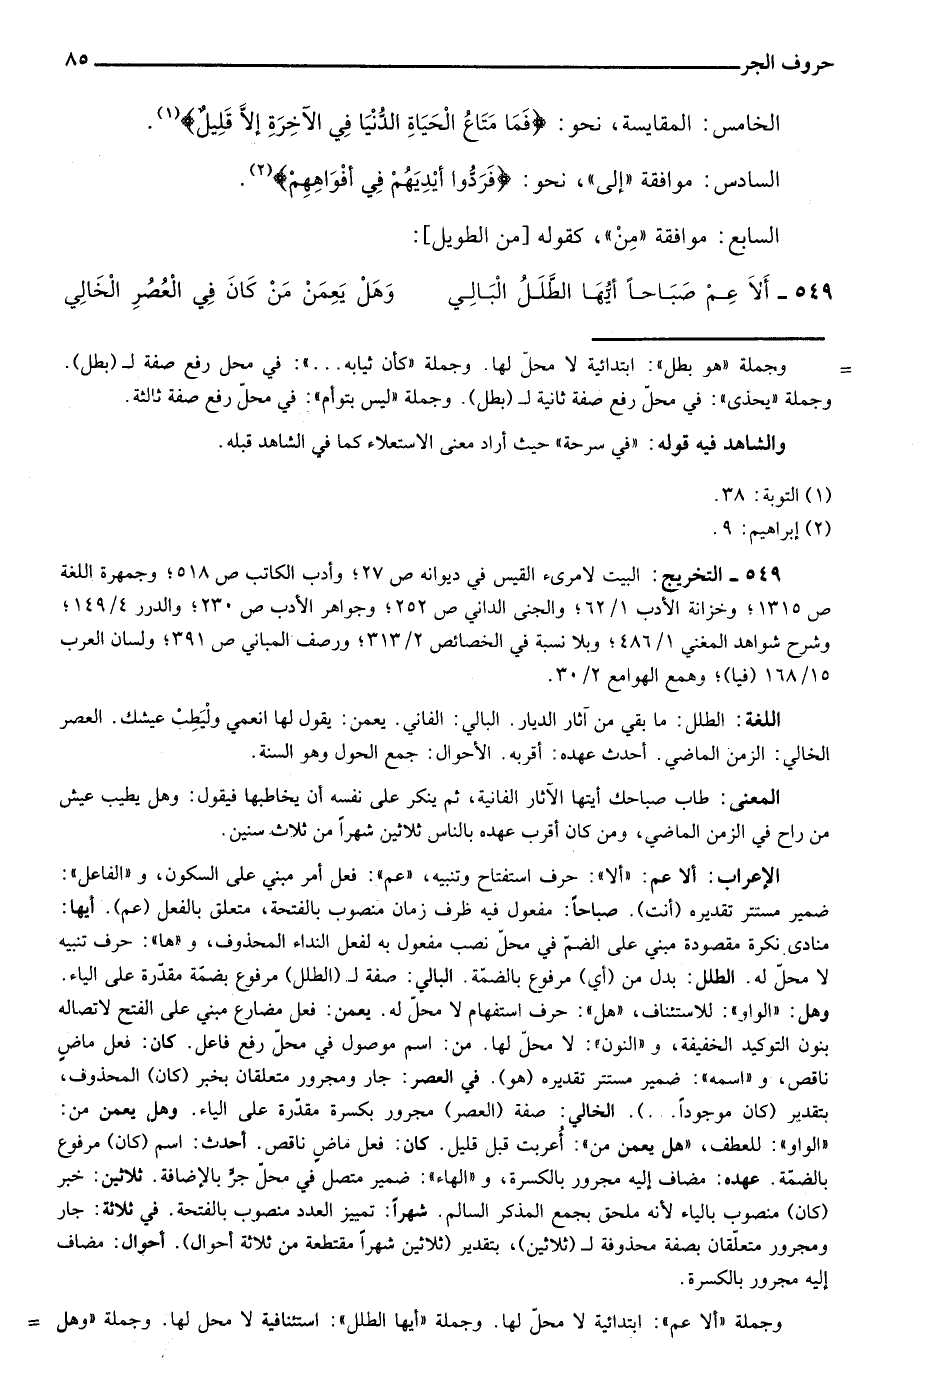 حروف الجر ٨٥
الخامس: المقايسة، نحو: ﴿فَمَا مَتَاعُ الْحَيَاةِ الدُّنْيَا فِي الآخِرَةِ إلاَّ قَلِيلٌ﴾(١).
السادس: موافقة «إلى»، نحو: ﴿فَرَدُّوا أيْدِيَهُمْ فِي أفْوَاهِهِمْ﴾(٢).
السابع: موافقة «مِنْ»، كقوله [من الطويل]:
٥٤٩ ـ أَلاَ عِـمْ صَبَـاحـاً أيُّهَـا الطَّلَـلُ الْبَـالِـي وَهَلْ يَعِمَنْ مَنْ كَانَ فِي الْعُصُرِ الْخَالِي
= وجملة «هو بطل»: ابتدائية لا محلّ لها. وجملة «كأن ثيابه...»: في محل رفع صفة لـ (بطل).
وجملة «يحذى»: في محلّ رفع صفة ثانية لـ (بطل). وجملة «ليس بتوأم»: في محلّ رفع صفة ثالثة.
والشاهد فيه قوله: «في سرحة» حيث أراد معنى الاستعلاء كما في الشاهد قبله.
(١) التوبة: ٣٨.
(٢) إبراهيم: ٩.
٥٤٩ ـ التخريج: البيت لامرىء القيس في ديوانه ص ٢٧؛ وأدب الكاتب ص ٥١٨؛ وجمهرة اللغة
ص ١٣١٥؛ وخزانة الأدب ١/ ٦٢؛ والجنى الداني ص ٢٥٢؛ وجواهر الأدب ص ٢٣٠؛ والدرر ٤/ ١٤٩؛
وشرح شواهد المغني ١/ ٤٨٦؛ وبلا نسبة في الخصائص ٢/ ٣١٣؛ ورصف المباني ص ٣٩١؛ ولسان العرب
١٥/ ١٦٨ (فيا)؛ وهمع الهوامع ٢/ ٣٠.
اللغة: الطلل: ما بقي من آثار الديار. البالي: الفاني. يعمن: يقول لها انعمي ولْيَطِبْ عيشك. العصر
الخالي: الزمن الماضي. أحدث عهده: أقربه. الأحوال: جمع الحول وهو السنة.
المعنى: طاب صباحك أيتها الآثار الفانية، ثم ينكر على نفسه أن يخاطبها فيقول: وهل يطيب عيش
من راح في الزمن الماضي، ومن كان أقرب عهده بالناس ثلاثين شهراً من ثلاث سنين.
الإعراب: ألا عم: «ألا»: حرف استفتاح وتنبيه، «عم»: فعل أمر مبني على السكون، و «الفاعل»:
ضمير مستتر تقديره (أنت). صباحاً: مفعول فيه ظرف زمان منصوب بالفتحة، متعلق بالفعل (عم). أيها:
منادى نكرة مقصودة مبني على الضمّ في محلّ نصب مفعول به لفعل النداء المحذوف، و «ها»: حرف تنبيه
لا محلّ له. الطلل: بدل من (أي) مرفوع بالضمّة. البالي: صفة لـ (الطلل) مرفوع بضمّة مقدّرة على الياء.
وهل: «الواو»: للاستئناف، «هل»: حرف استفهام لا محلّ له. يعمن: فعل مضارع مبني على الفتح لاتصاله
بنون التوكيد الخفيفة، و «النون»: لا محلّ لها. من: اسم موصول في محلّ رفع فاعل. كان: فعل ماضٍ
ناقص، و «اسمه»: ضمير مستتر تقديره (هو). في العصر: جار ومجرور متعلقان بخبر (كان) المحذوف،
بتقدير (كان موجوداً...). الخالي: صفة (العصر) مجرور بكسرة مقدّرة على الياء. وهل يعمن من:
«الواو»: للعطف، «هل يعمن من»: أُعربت قبل قليل. كان: فعل ماضٍ ناقص. أحدث: اسم (كان) مرفوع
بالضمّة. عهده: مضاف إليه مجرور بالكسرة، و «الهاء»: ضمير متصل في محلّ جرٍّ بالإضافة. ثلاثين: خبر
(كان) منصوب بالياء لأنه ملحق بجمع المذكر السالم. شهراً: تمييز العدد منصوب بالفتحة. في ثلاثة: جار
ومجرور متعلّقان بصفة محذوفة لـ (ثلاثين)، بتقدير (ثلاثين شهراً مقتطعة من ثلاثة أحوال). أحوال: مضاف
إليه مجرور بالكسرة.
وجملة «ألا عم»: ابتدائية لا محلّ لها. وجملة «أيها الطلل»: استئنافية لا محل لها. وجملة «وهل =